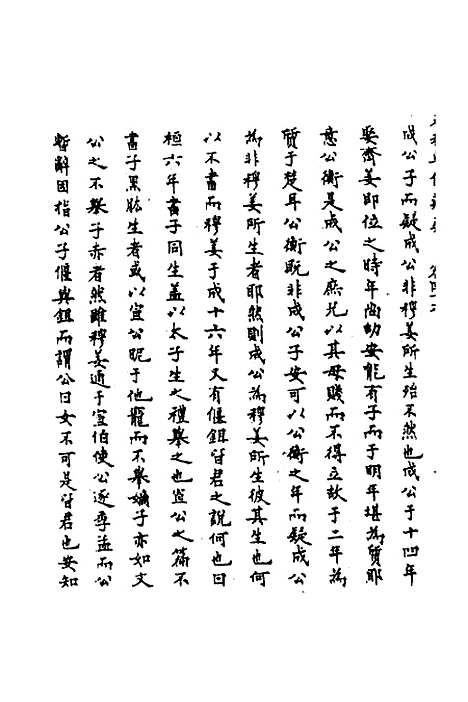 成公子而疑成公非穆姜所生殆不然也成公于十四年
娶齊姜即位之時年尚幼安能有子而于明年堪為質耶
意公衡是成公之庶兄以其母賤而不得立故于二年為
質于楚耳公衡既非成公子安可以公衡之年而疑成公
為非穆姜所生者耶然則成公為穆姜所生彼其生也何
以不書而穆姜于成十六年又有偃鉏皆君之說何也曰
桓六年書子同生蓋以太子生之禮舉之也宣公之篇不
書子黑肱生者或以宣公昵于他寵而不舉嫡子亦如文
公之不舉子赤者然雖穆姜通于宣伯使公逐季孟而公
暫辭因指公子偃與鉏而謂公曰女不可是皆君也安知